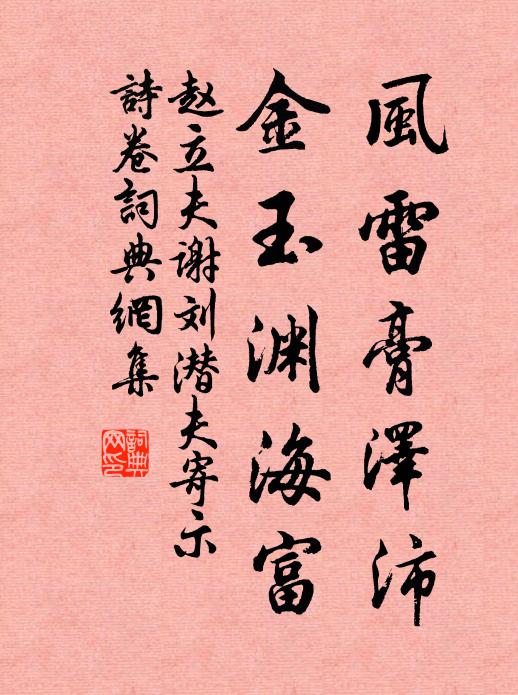 風雷膏澤沛
金玉渊海富
赵立夫谢刘潜夫寄示
詩卷詞典網集
詞典
网印